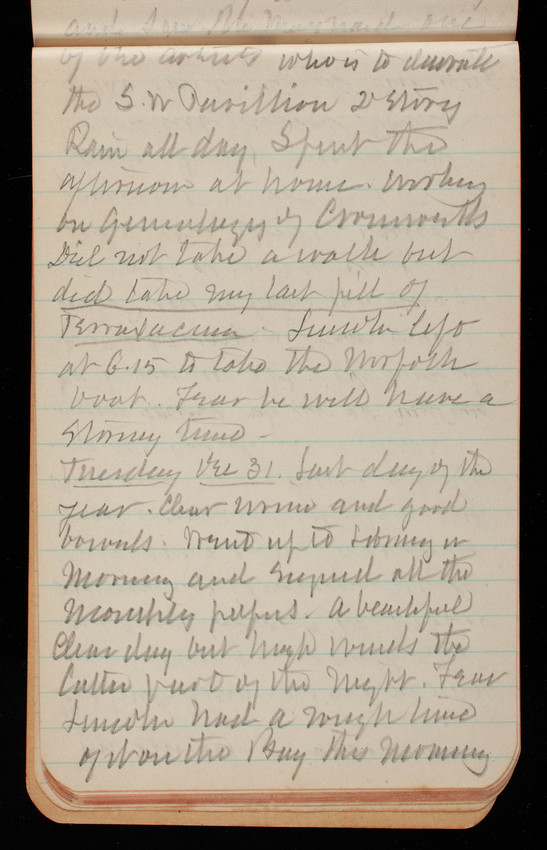 and
of the artists who is to decorate
the S.W Pavillion 2d Story
Rain all day, Spent the
afternoon at home. working
on Genealogy of
Did not take a walk but
did take my last pill of
Terraxacum - Lincoln left
at 6.15 to take the Norfolk
boat. Fear he will have a
Stormy time -
Tuesday Dec 31. Last day of the
year. Clear urine and good
bowels. Went up to Library in
Morning and signed all the
Monthly papers. A beautiful
Clear day but high winds the
latter part of the Night. Fear
Lincoln had a rough time
of it on the Bay this Morning